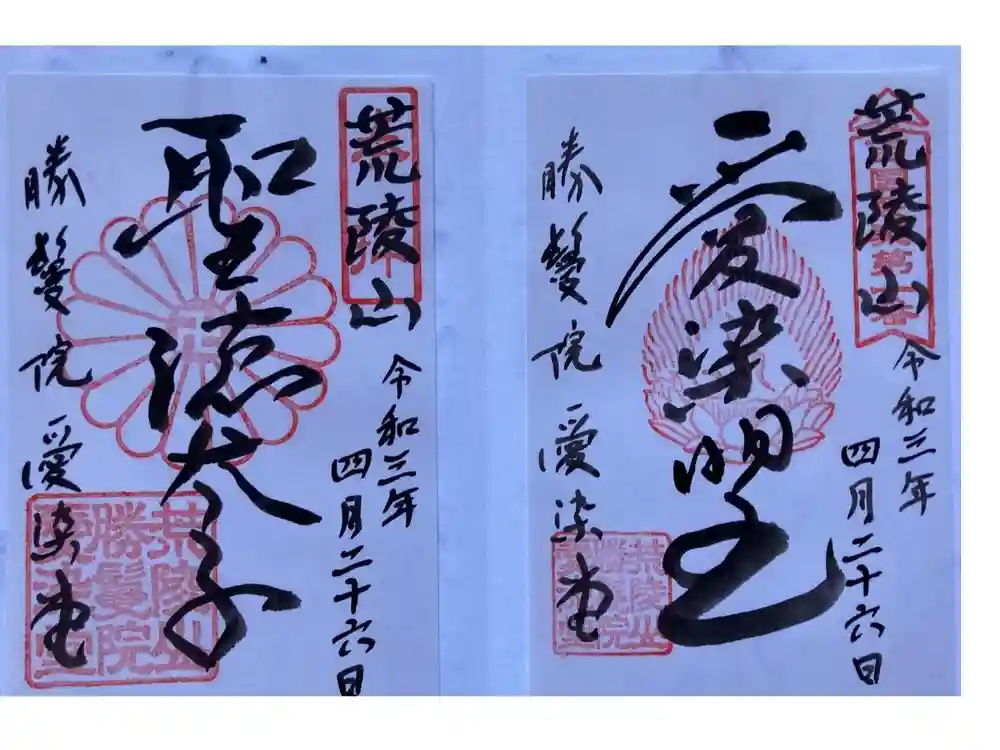 荒陵山
愛染明王
令和三年
四月二十六日
勝鬘院愛染堂
荒陵山
聖徳太子
令和三年
四月二十六日
勝鬘院愛染堂
荒陵山
勝鬘院
愛染堂
荒陵山
勝鬘院
愛染堂